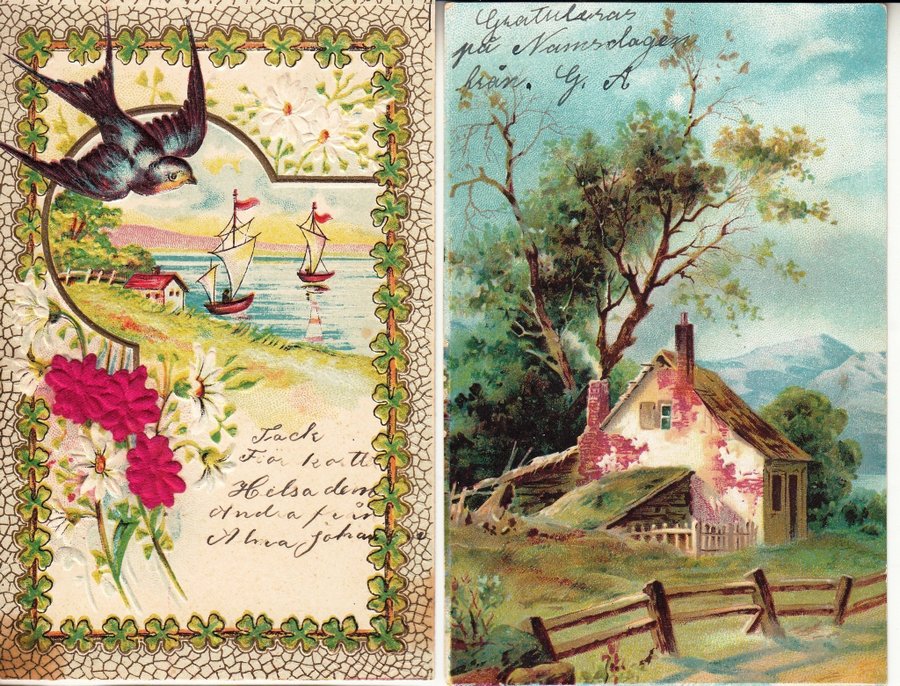 Tack
För kortt
Helsa dem
Andra från
Alma Johansson
Gratuleras
på Namsdagen
från. G. A